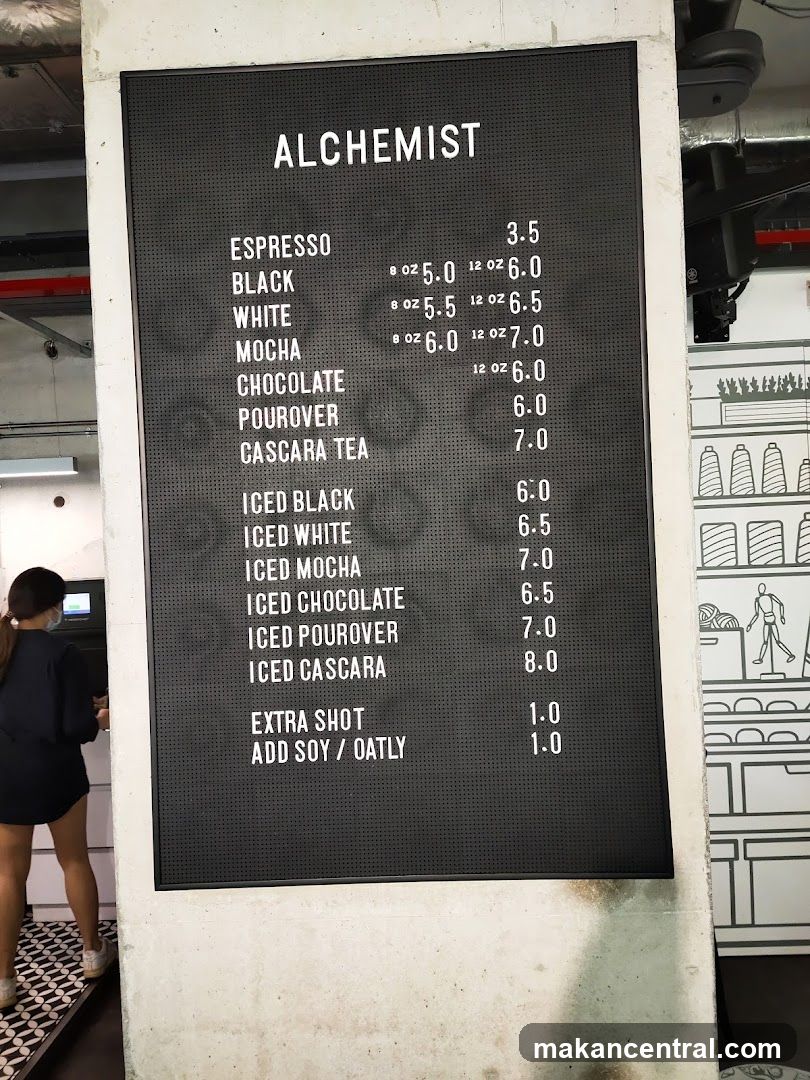 ALCHEMIST
ESPRESSO 3.5
BLACK 8 OZ 5.0 12 OZ 6.0
WHITE 8 OZ 5.5 12 OZ 6.5
MOCHA 8 OZ 6.0 12 OZ 7.0
CHOCOLATE 12 OZ 6.0
POUROVER 6.0
CASCARA TEA 7.0
ICED BLACK 6.0
ICED WHITE 6.5
ICED MOCHA 7.0
ICED CHOCOLATE 6.5
ICED POUROVER 7.0
ICED CASCARA 8.0
EXTRA SHOT 1.0
ADD SOY / OATLY 1.0
makancentral.com